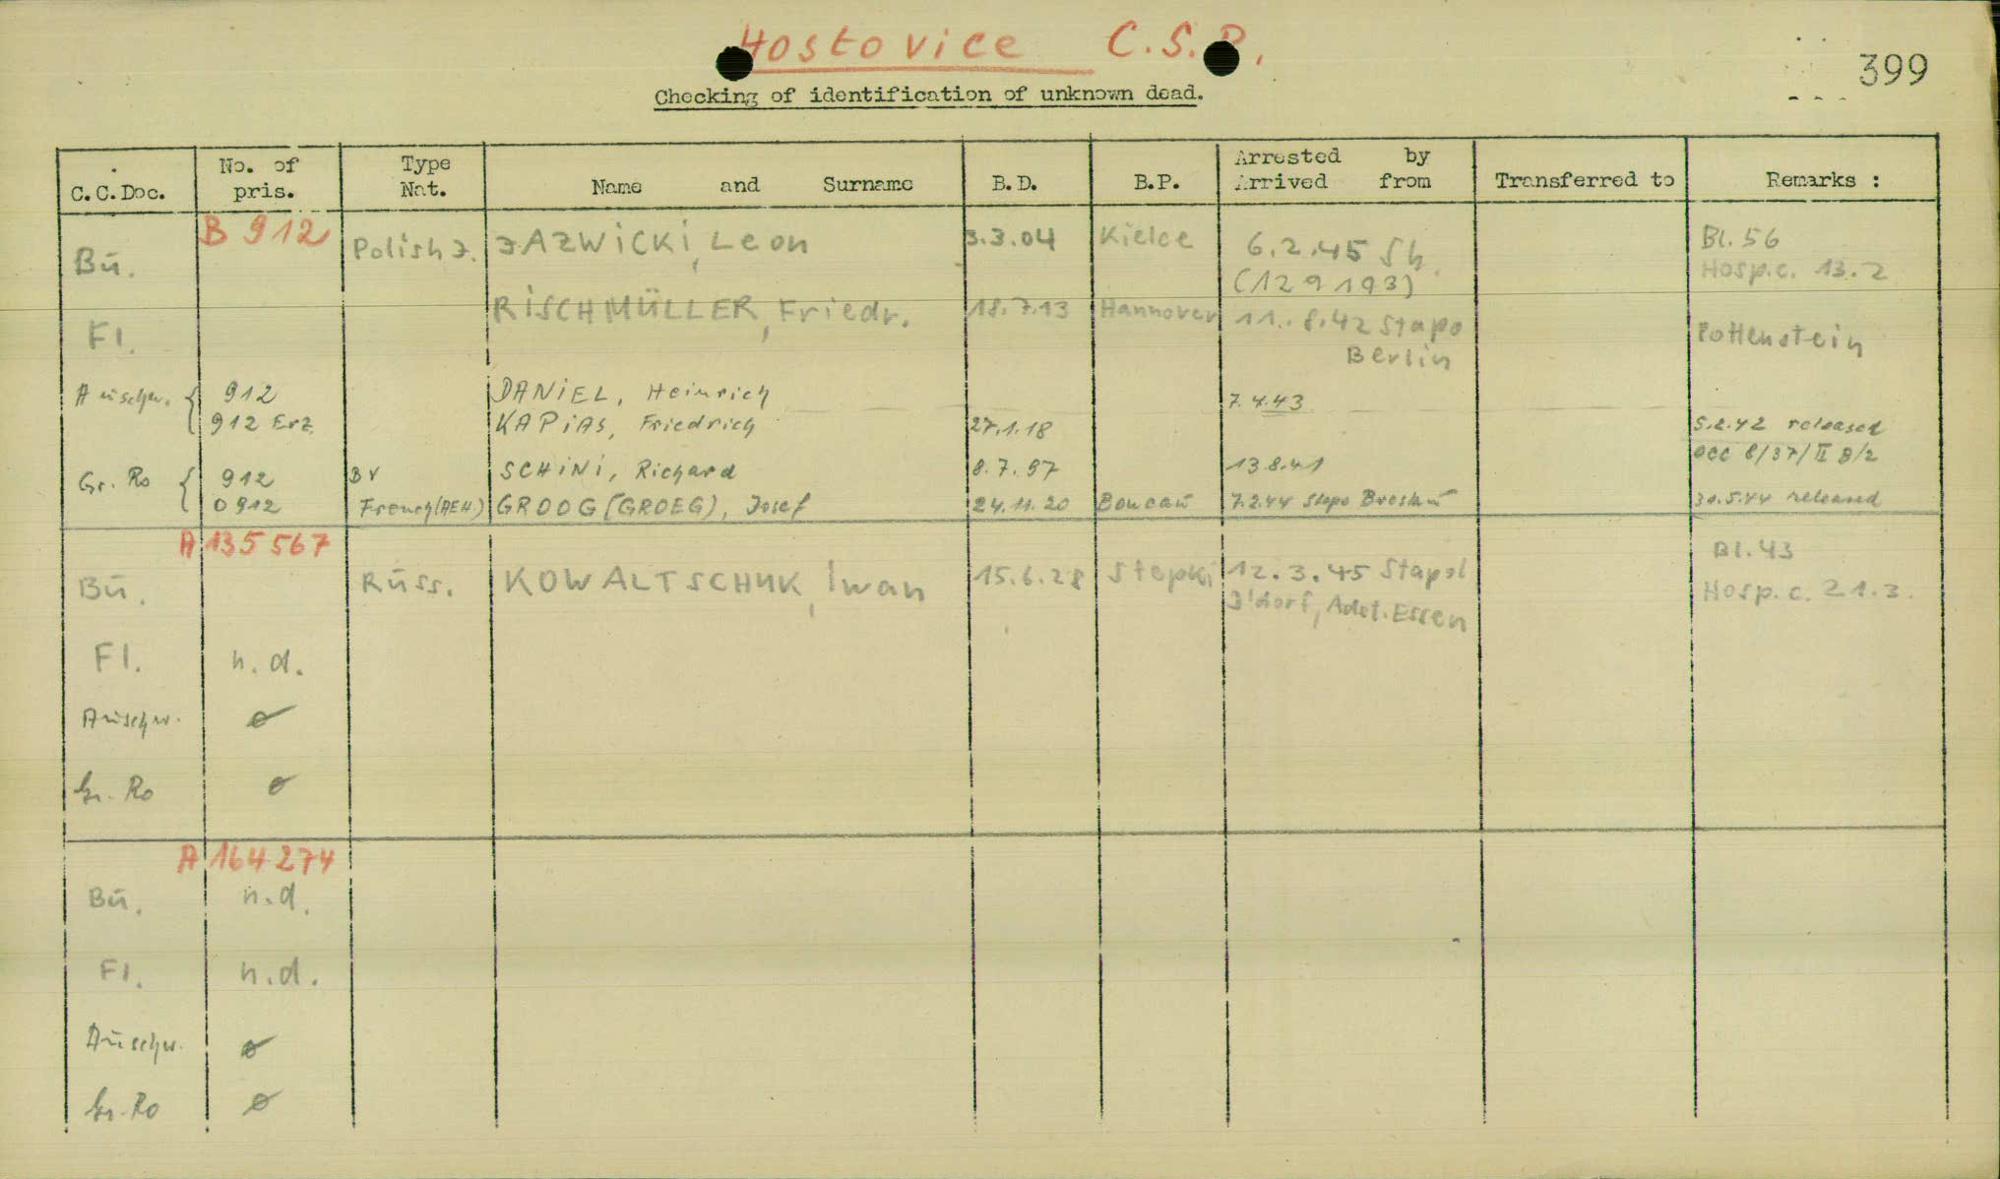 Hostovice C.S.R.
399
Checking of identification of unknown dead.
C.C.Doc. No. of pris. Type Nat. Name and Surname B.D. B.P. Arrested by Arrived from Transferred to Remarks :
B 912
Bū. Polish J. JAZWiCKi, Leon 3.3.04 Kielce 6.2.45 Bl. 56
(129193) Hosp.c. 13.2
Fl. RiSCHMÜLLER, Friedr. 18.7.13 Hannover 11.8.42 Stapo Berlin Pottenstein
Auschw. { 912 DANiEL, Heinrich 7.4.43
912 Erz. KAPiAS, Friedrich 27.1.18 5.2.42 released
occ 8/37/II 8/2
Gr. Ro { 912 BV SCHiNi, Richard 8.7.97 13.8.41
0912 French (AEH) GROOG (GROEG), Josef 24.11.20 Boucau 7.2.44 Stapo Breslau 31.5.44 released
A 135567
Bū. Rūss. KOWALTSCHUK, Iwan 15.6.28 Stepki 12.3.45 Stapol Bl. 43
D'dorf, Adst. Essen Hosp.c. 21.3.
Fl. n.d.
Auschw. ø
Gr. Ro ø
A 164274
Bū. n.d.
Fl. n.d.
Auschw. ø
Gr. Ro ø